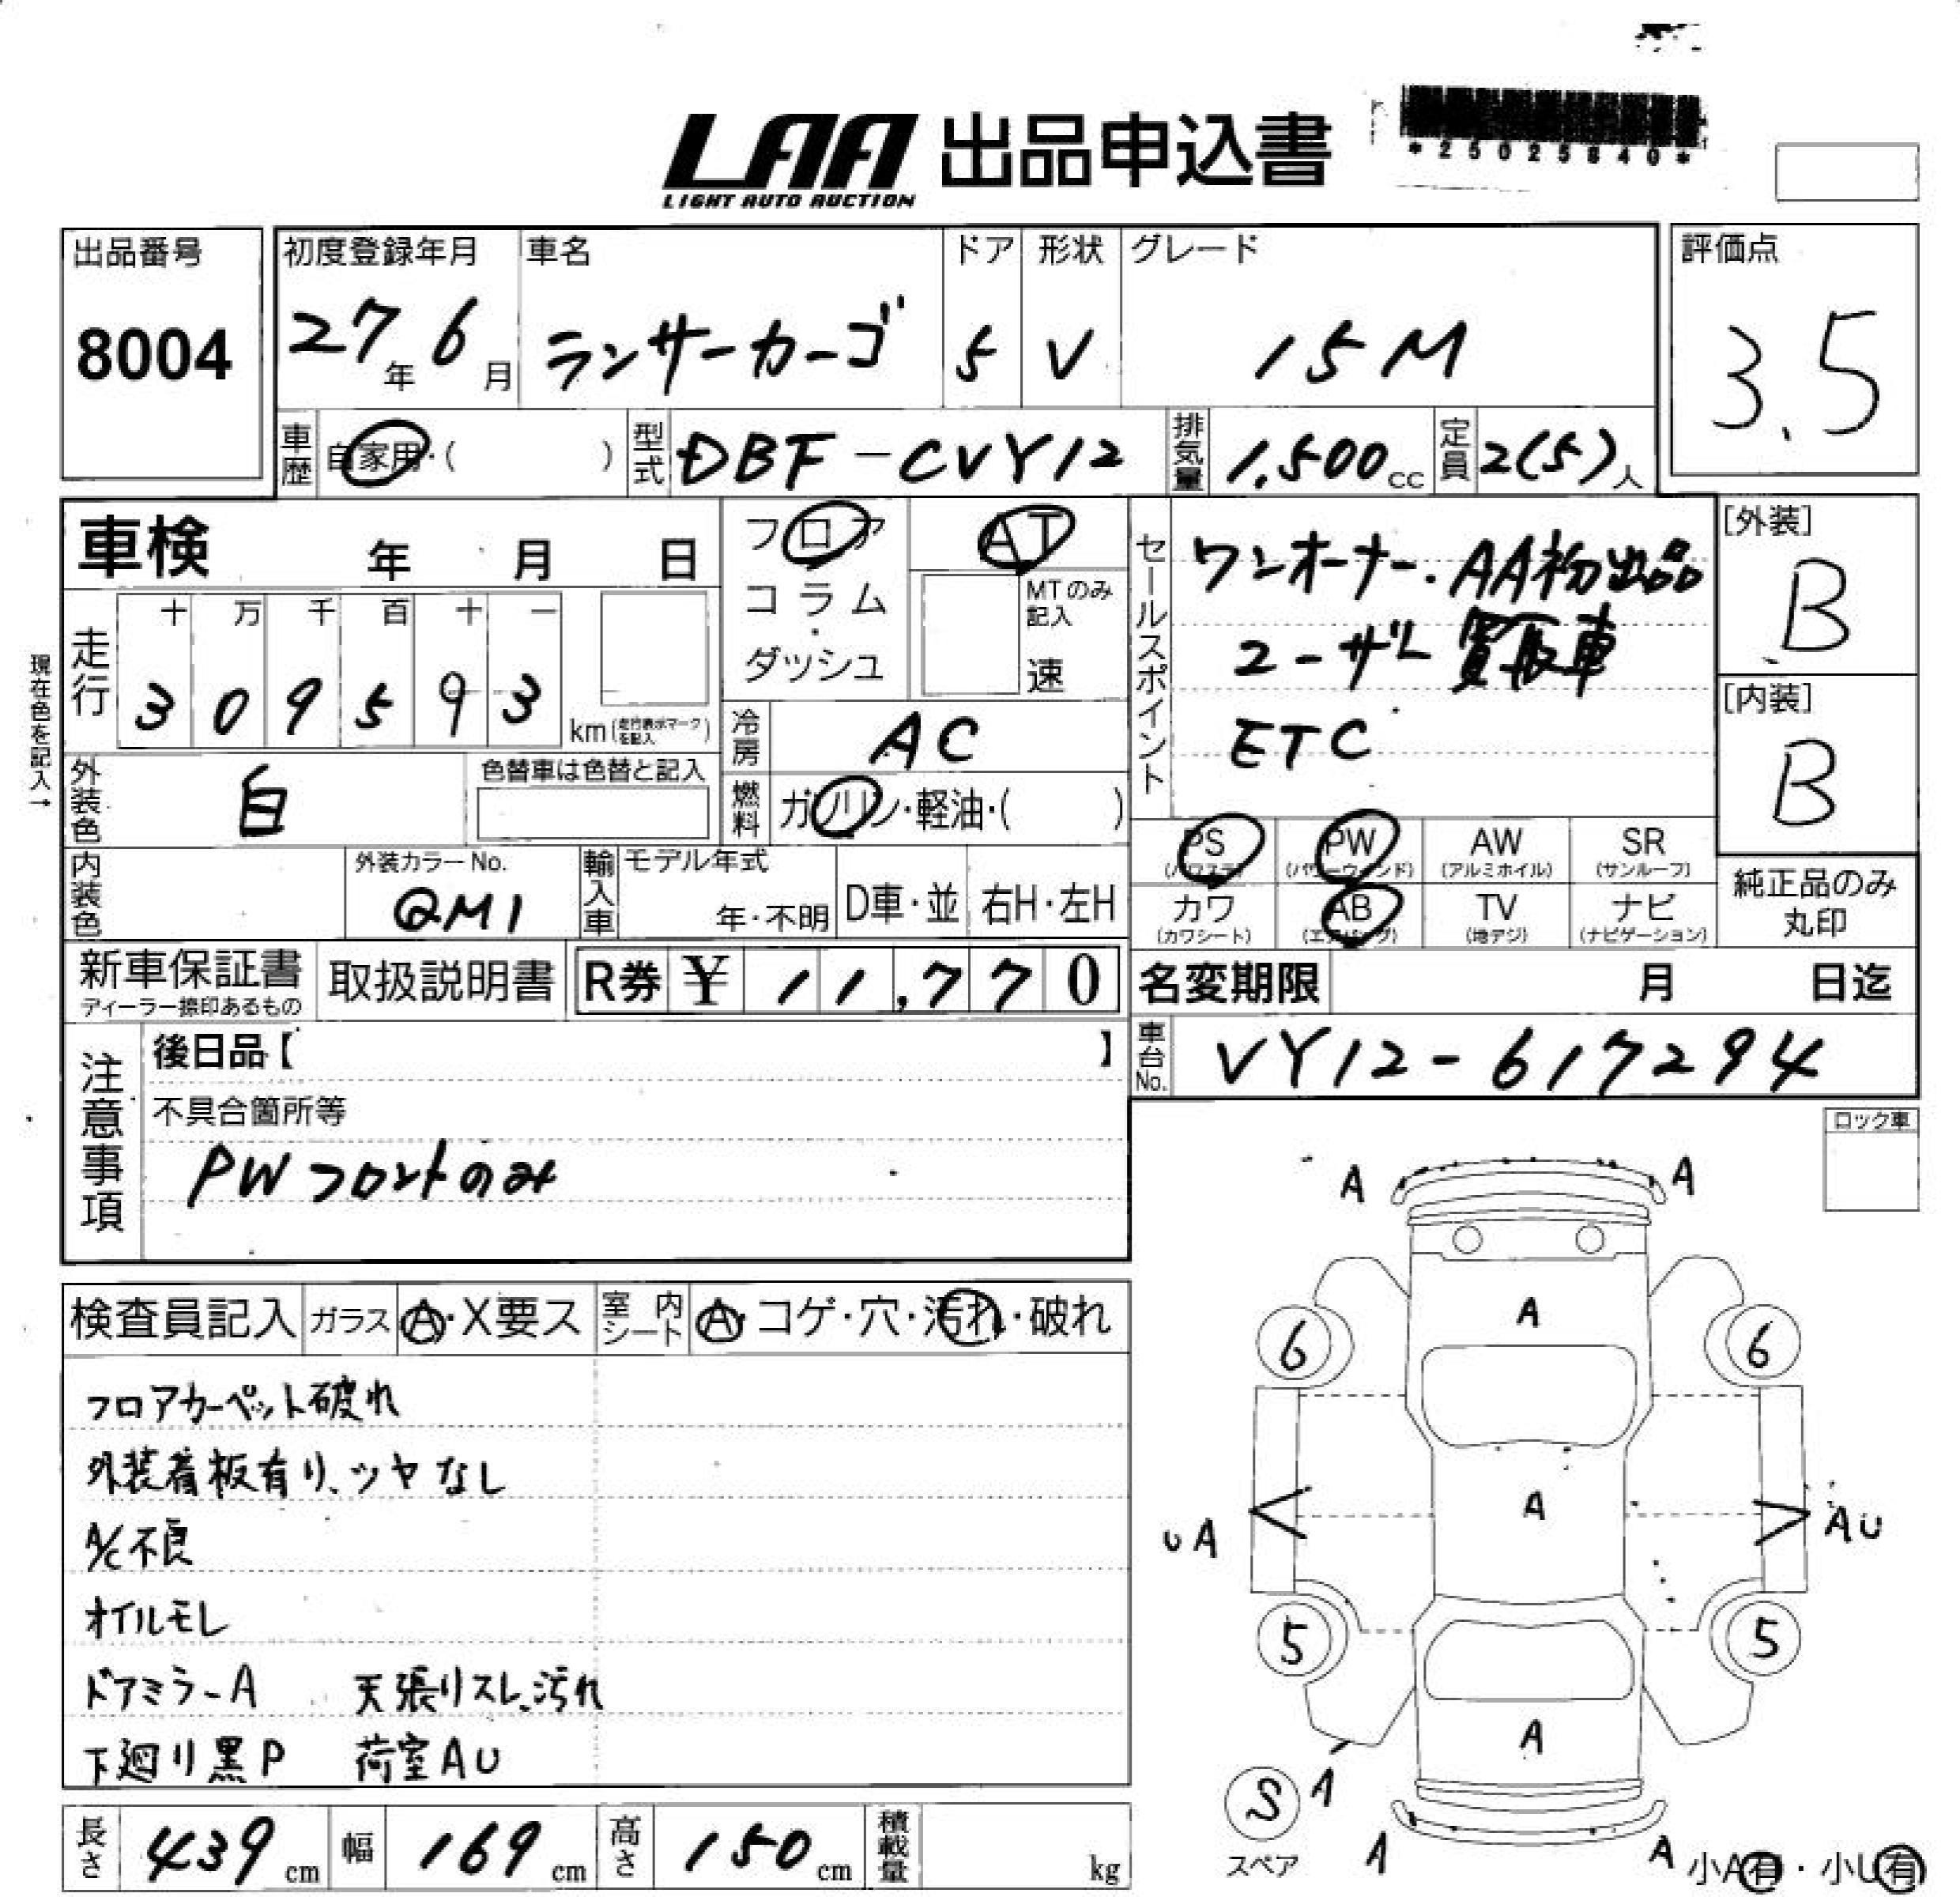 LAA 出品申込書
LIGHT AUTO AUCTION
*25025840*
出品番号
8004
初度登録年月
27年6月
車名
ランサーカーゴ
ドア
5
形状
V
グレード
15M
評価点
3.5
車歴
自家用・( )
型式
DBF-CVY12
排気量
1,500cc
定員
2(5)人
車検 年 月 日
フロア
コラム
・
ダッシュ
AT
MTのみ
記入
速
セールスポイント
ワンオーナー.AA初出品
ユーザー買取車
ETC
[外装]
B
[内装]
B
現在色を記入→
走行
十 万 千 百 十 一
3 0 9 5 9 3
km(走行表示マークを記入)
冷房
AC
外装色
白
色替車は色替と記入
燃料
ガソリン・軽油・( )
内装色
外装カラーNo.
QM1
輸入車
モデル年式
年・不明
D車・並
右H・左H
PS
(パワステ)
PW
(パワーウィンド)
AW
(アルミホイル)
SR
(サンルーフ)
カワ
(カワシート)
AB
(エアバッグ)
TV
(地デジ)
ナビ
(ナビゲーション)
純正品のみ
丸印
新車保証書
ディーラー捺印あるもの
取扱説明書
R券 ¥ 11,770
名変期限 月 日迄
車台No.
VY12-617294
注意事項
後日品【 】
不具合箇所等
PWフロントのみ
ロック車
検査員記入
ガラス
A・X要ス
室内シート
A・コゲ・穴・汚れ・破れ
フロアカーペット破れ
外装着板有り、ツヤなし
A/C不良
オイルモレ
ドアミラーA 天張りスレ、汚れ
下廻り黒P 荷室AU
A A
A
6 6
A
UA AU
5 5
A
S A
スペア
A A
小A有・小U有
長さ 439cm
幅 169cm
高さ 150cm
積載量 kg